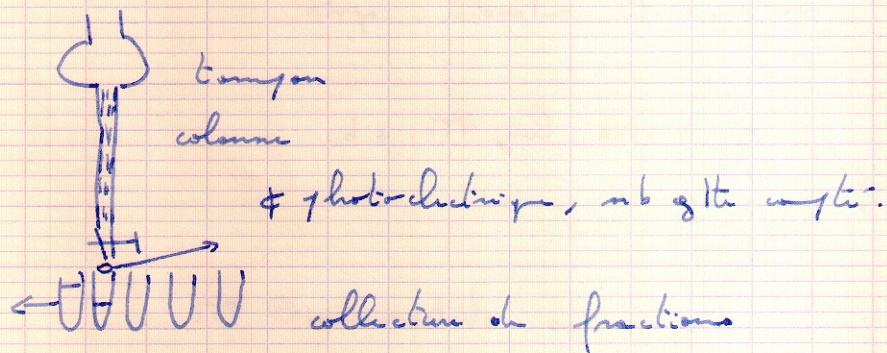 tampon
colonne
¢ photoélectrique, nb gtte compté.
collecteur de fractions